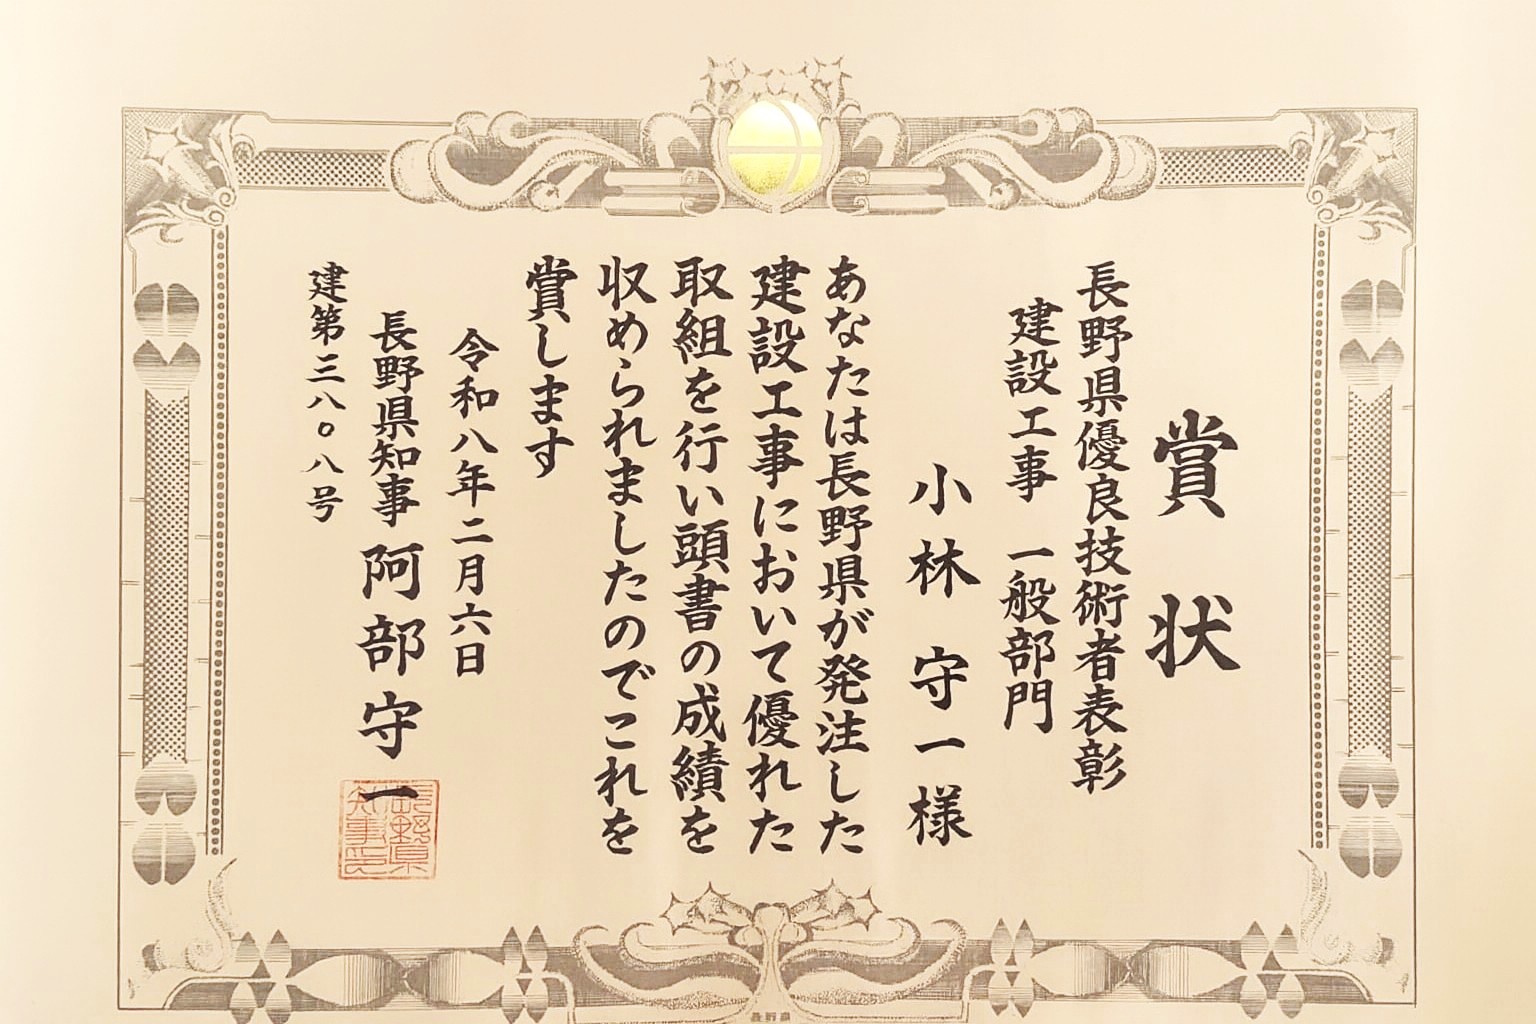 賞状
長野県優良技術者表彰
建設工事 一般部門
小林守一様
あなたは長野県が発注した
建設工事において優れた
取組を行い頭書の成績を
収められましたのでこれを
賞します
令和八年二月六日
長野県知事 阿部守一
建第三八〇八号
長野県知事印